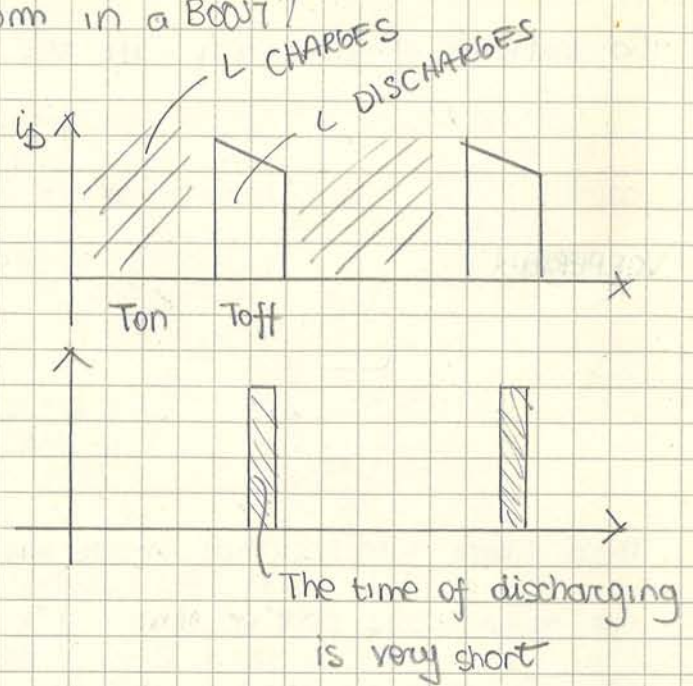 in a BOOST!
L CHARGES
L DISCHARGES
iD
Ton Toff
The time of discharging
is very short